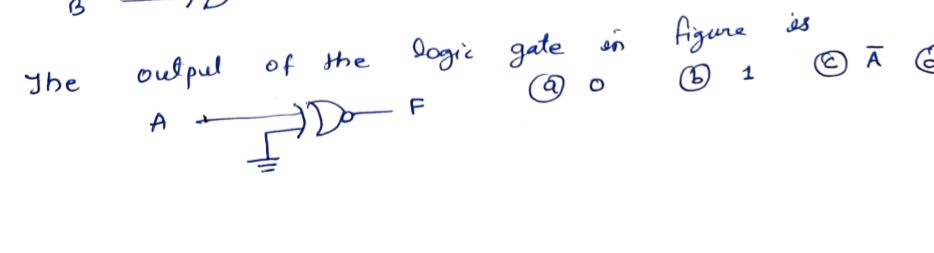 B
The output of the logic gate in figure is
ⓐ 0 ⓑ 1 ⓒ Ā
A F